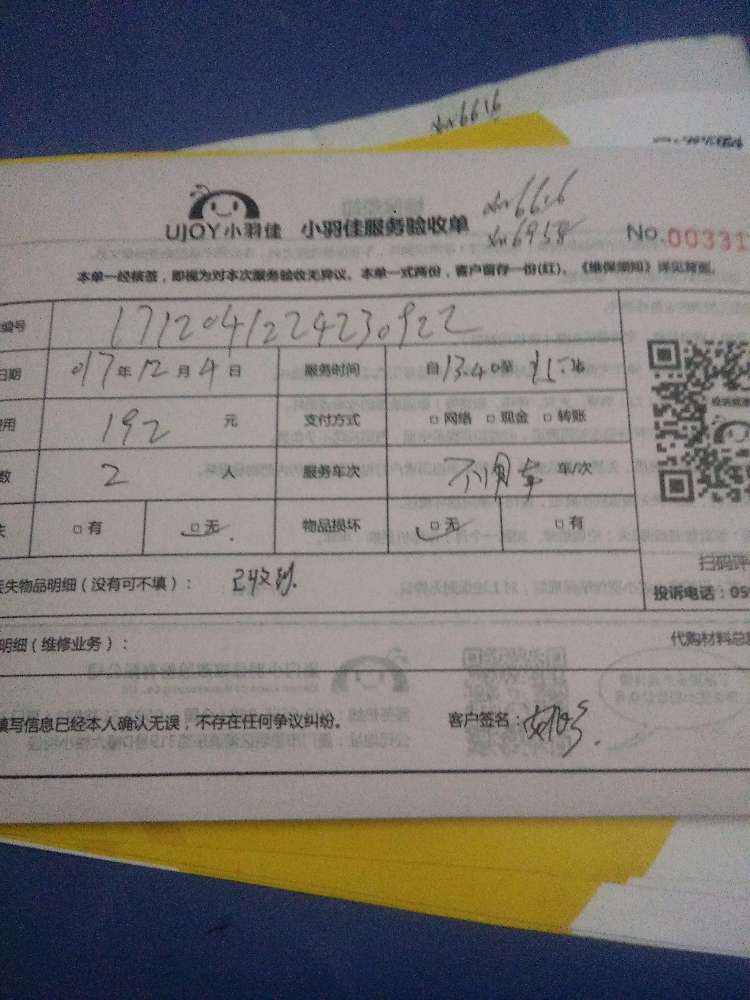 xn6616
UJOY小羽佳 小羽佳服务验收单
xn6616
xn6958
No.00331
本单一经核签，即视为对本次服务验收无异议。本单一式两份，客户留存一份(红)。《维保须知》详见背面。
编号 1712041224230922
日期 017年12月4日 服务时间 自13.40至
费用 192 元 支付方式 □网络 □现金 □转账
数 2 人 服务车次 不用车 车/次
失 □有 □无 物品损坏 □无 □有
丢失物品明细（没有可不填）： 已收到.
扫码评
投诉电话：05
明细（维修业务）：
代购材料总
填写信息已经本人确认无误，不存在任何争议纠纷。 客户签名：